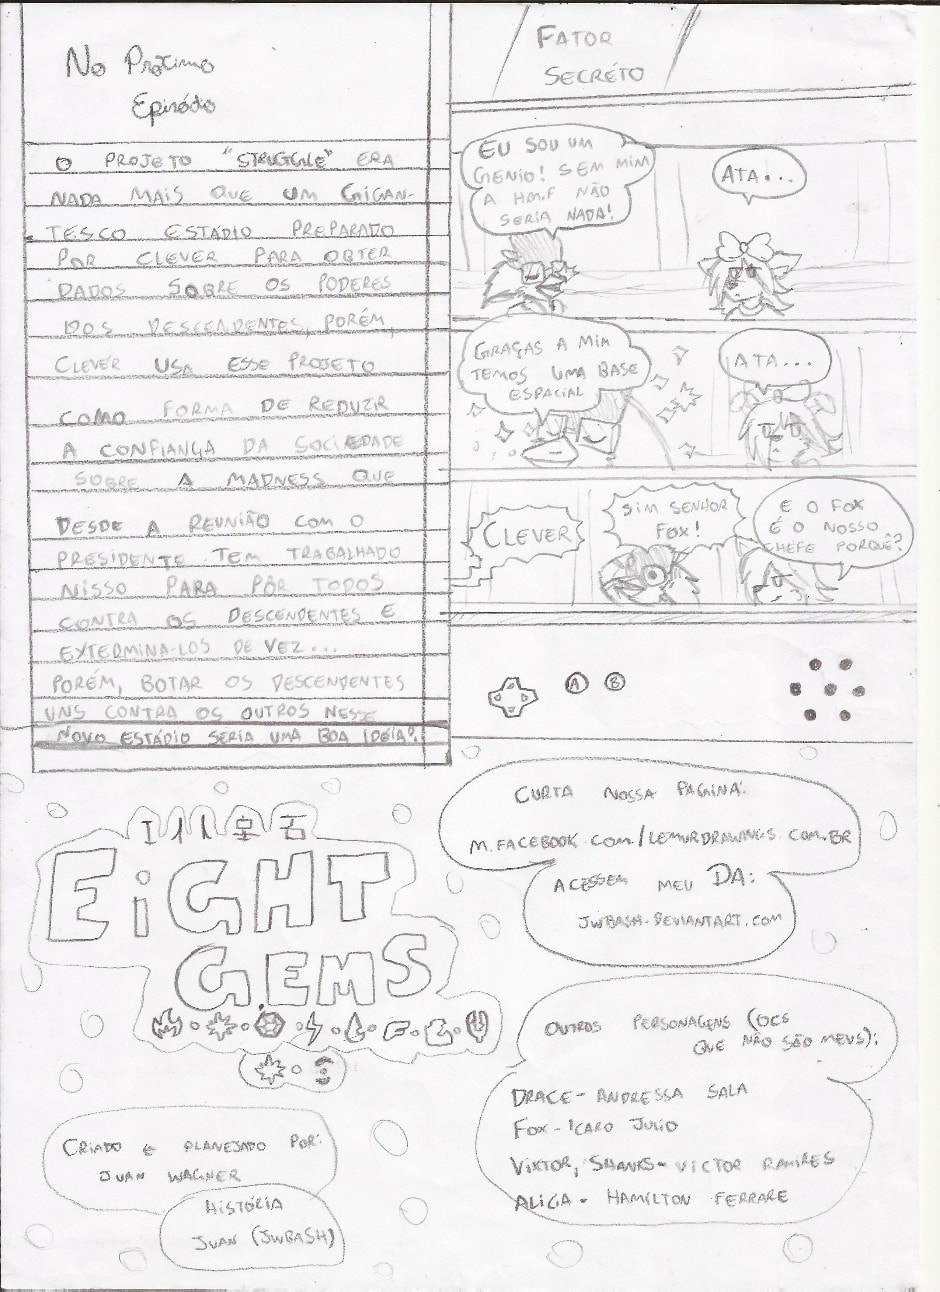 No Proximo
Episódio
O PROJETO "STRUGGLE" ERA
NADA MAIS QUE UM GIGAN-
TESCO ESTÁDIO PREPARADO
POR CLEVER PARA OBTER
DADOS SOBRE OS PODERES
DOS DESCENDENTES, PORÉM,
CLEVER USA ESSE PROJETO
COMO FORMA DE REDUZIR
A CONFIANÇA DA SOCIEDADE
SOBRE A MADNESS QUE
DESDE A REUNIÃO COM O
PRESIDENTE TEM TRABALHADO
NISSO PARA PÔR TODOS
CONTRA OS DESCENDENTES E
EXTERMINA-LOS DE VEZ...
PORÉM, BOTAR OS DESCENDENTES
UNS CONTRA OS OUTROS NESSE
NOVO ESTÁDIO SERIA UMA BOA IDÉIA?
FATOR
SECRÉTO
EU SOU UM
GENIO! SEM MIM
A HM.F NÃO
SERIA NADA!
ATA...
GRAÇAS A MIM
TEMOS UMA BASE
ESPACIAL
ATA...
CLEVER
SIM SENHOR
FOX!
E O FOX
É O NOSSO
CHEFE PORQUÊ?
A B
CURTA NOSSA PAGINA:
M.FACEBOOK.COM/LEMURDRAWINGS.COM.BR
ACESSEM MEU DA:
JWBASH-DEVIANTART.COM
EIGHT
GEMS
CRIADO E PLANEJADO POR:
JUAN WAGNER
HISTÓRIA
JUAN (JWBASH)
OUTROS PERSONAGENS (OCS
QUE NÃO SÃO MEUS):
DRACE- ANDRESSA SALA
FOX- ICARO JULIO
VIKTOR, SHANKS- VICTOR RAMIRES
ALICIA- HAMILTON FERRARE